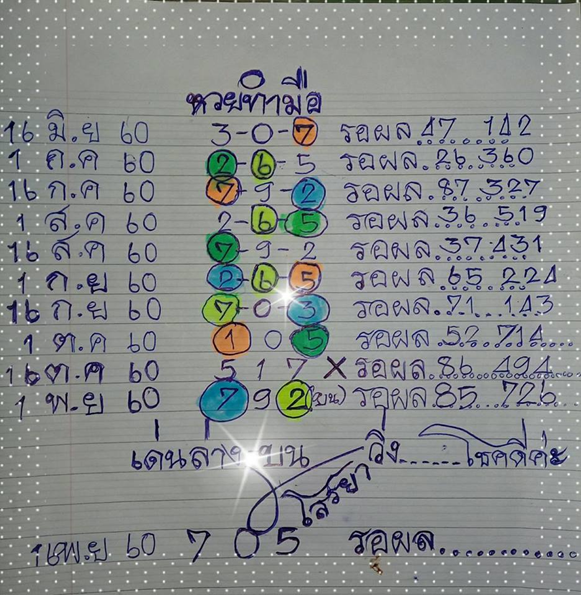 หวยทำมือ
16 มิ.ย 60 3-0-7 รอผล.47..142
1 ก.ค 60 2-6-5 รอผล.26.360
16 ก.ค 60 7-9-2 รอผล.87.327
1 ส.ค 60 2-6-5 รอผล.36.519
16 ส.ค 60 7-9-2 รอผล.37.431
1 ก.ย 60 2-6-5 รอผล.65.224
16 ก.ย 60 7-0-3 รอผล.71...143
1 ต.ค 60 1 0 5 รอผล.52.714....
16 ต.ค 60 5 1 7 X รอผล.86..494...
1 พ.ย 60 7 9 2 (บน) รอผล.85..726..
เด่นล่าง-บน วิ่ง.......โชคดีค่ะ
16พ.ย 60 7 0 5 รอผล............